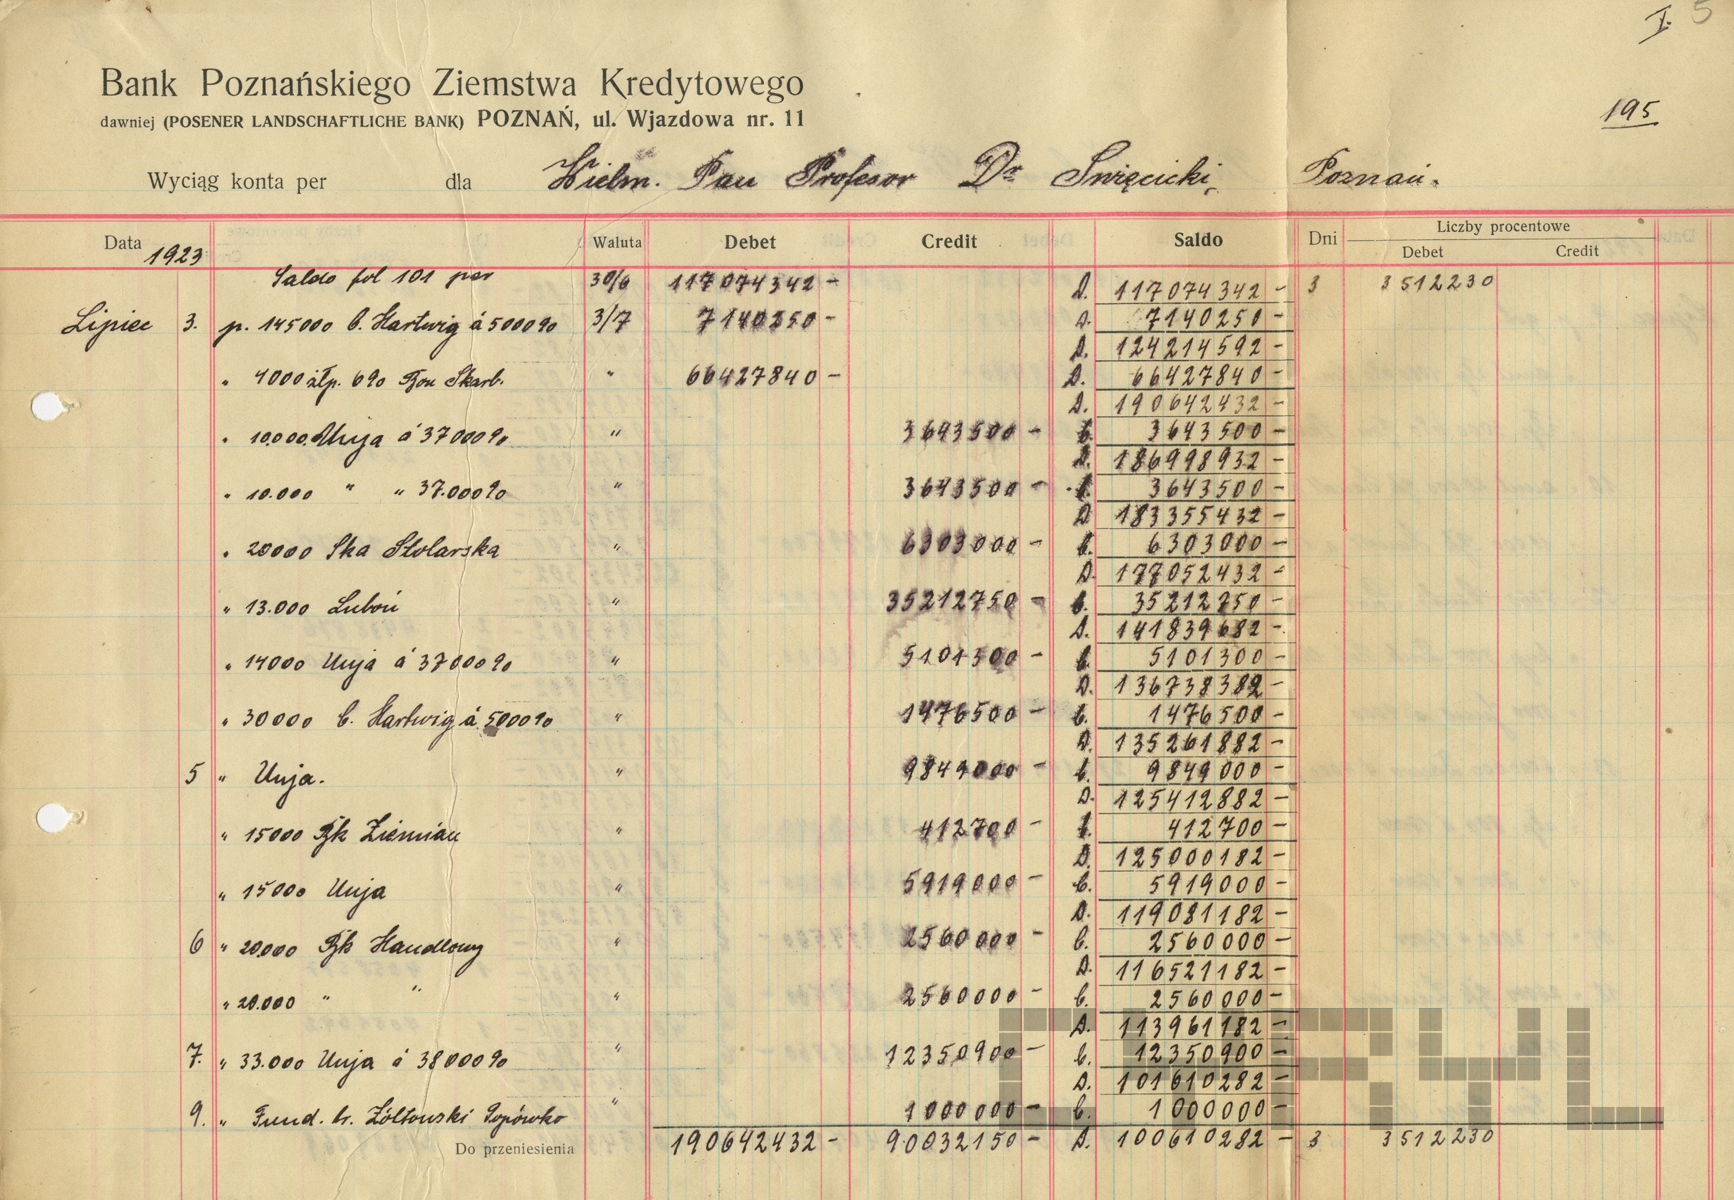 I. 5
Bank Poznańskiego Ziemstwa Kredytowego
dawniej (POSENER LANDSCHAFTLICHE BANK) POZNAŃ, ul. Wjazdowa nr. 11
195
Wyciąg konta per dla Wielm. Pan Profesor Dr Święcicki, Poznań.
Data 1923 Waluta Debet Credit Saldo Dni Liczby procentowe
Debet Credit
Saldo fol 101 per 30/6 117074342 - D. 117074342 - 3 3512230
Lipiec 3. p. 145000 C. Hartwig á 5000% 3/7 7140250 - D. 7140250 -
D. 124214592 -
" 4000 złp. 6% Bon Skarb. " 66427840 - D. 66427840 -
D. 190642432 -
" 10.000 Unja á 37000% " 3643500 - C. 3643500 -
D. 186998932 -
" 10.000 " " 37.000% " 3643500 - C. 3643500 -
D 183355432 -
" 20000 Ska Stolarska " 6303000 - C. 6303000 -
D. 177052432 -
" 13.000 Luboń " 35212750 - C. 35212750 -
D. 141839682 -
" 14000 Unja á 37000% " 5101300 - C. 5101300 -
D. 136738382 -
" 30000 C. Hartwig á 5000% " 1476500 - C. 1476500 -
D. 135261882 -
5 " Unja. " 9849000 - C. 9849000 -
D. 125412882 -
" 15000 Bk Ziemian " 412700 - C. 412700 -
D. 125000182 -
" 15000 Unja " 5919000 - C. 5919000 -
D. 119081182 -
6 " 20.000 Bk Handlowy " 2560000 - C. 2560000 -
D. 116521182 -
" 20.000 " " " 2560000 - C. 2560000 -
D. 113961182 -
7. " 33.000 Unja á 38000% " 12350900 - C. 12350900 -
D. 101610282 -
9. " Fund. hr. Żółtowski " 1000000 - C. 1000000 -
Do przeniesienia 190642432 - 90032150 - D. 100610282 - 3 3512230